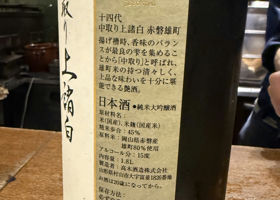 中取り上諸白
十四代
中取り上諸白 赤磐雄町
揚げ槽時、香味のバラン
スが最良の雫を集めるこ
とから「中取り」と呼ばれ、
雄町米の持つ清々しく、
上品な味わいを十分に堪
能できる艶酒。
日本酒 ●純米大吟醸酒
原材料名:
米(国産)、米麹(国産米)
精米歩合:45%
原料米:岡山県赤磐産
雄町80%使用
アルコール分:15度
内容量:1.8L
製造者:高木酒造株式会社
山形県村山市大字富並1826番地
お酒は20歳になってから。
保存方法: